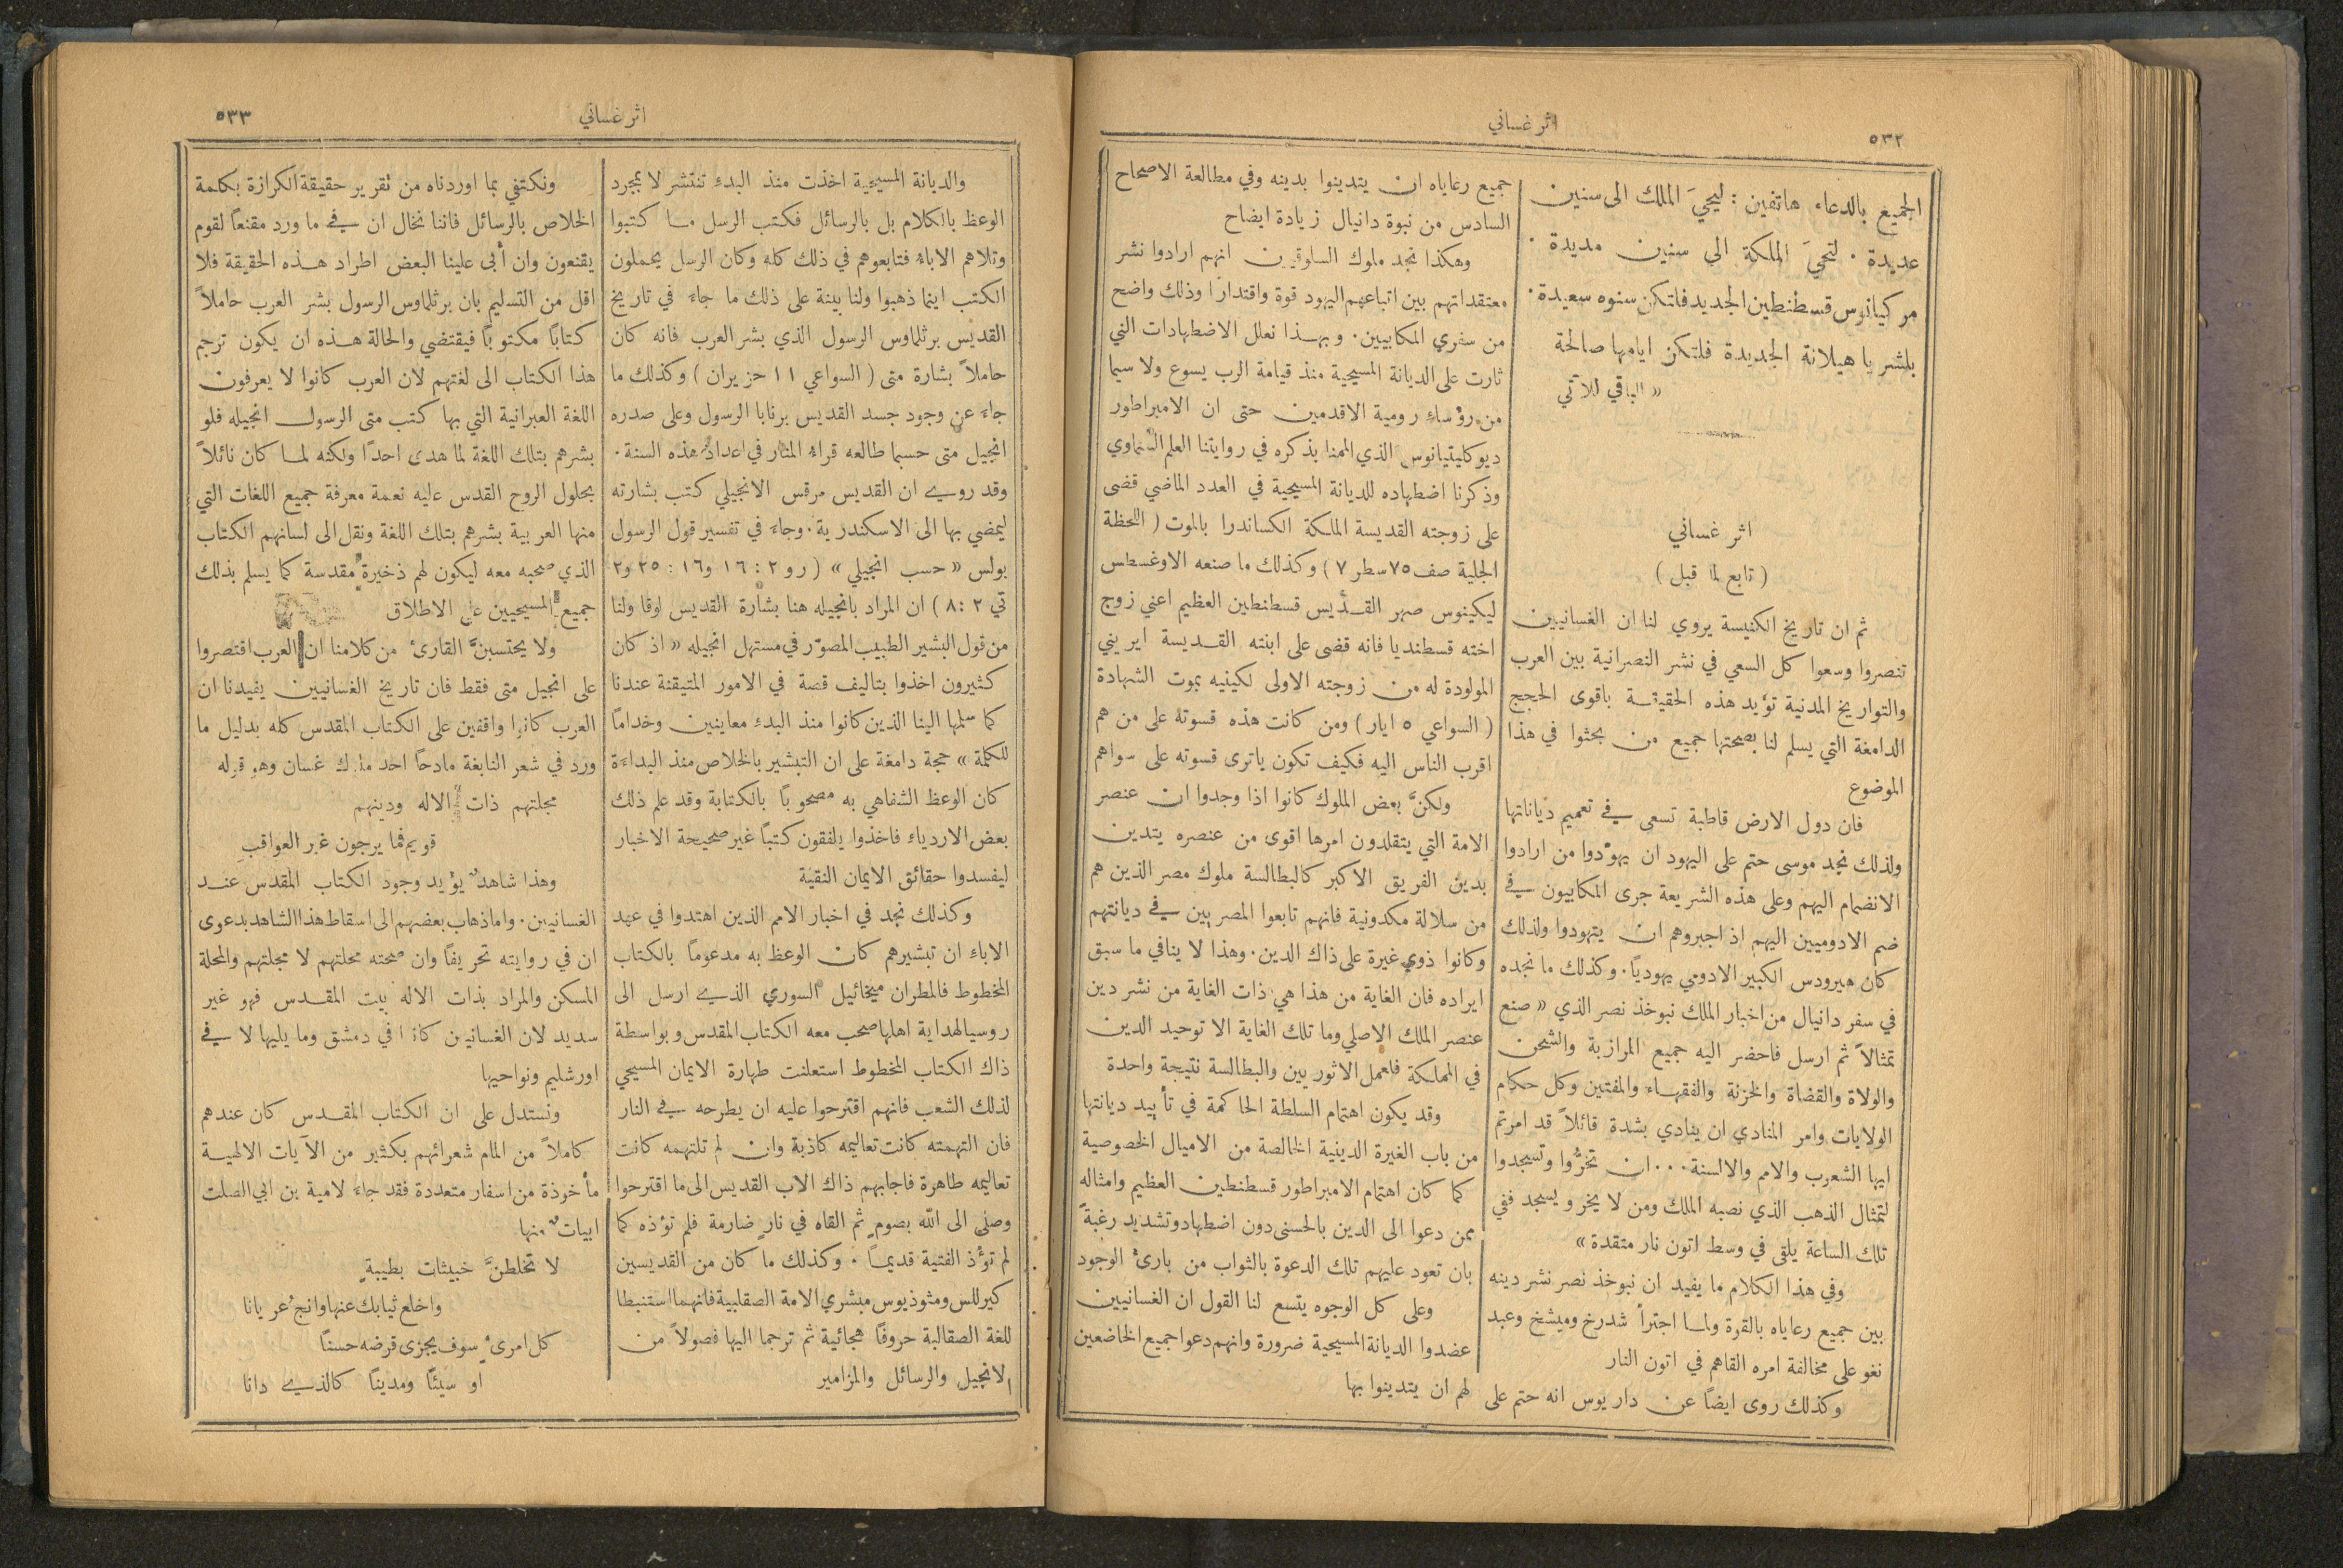 ٥٣٢
اثر غساني
الجميع بالدعاء هاتفين : ليحيَ الملك الى سنين
عديدة . لتحيَ الملكة الى سنين مديدة .
مركيانوس قسطنطين الجديد فلتكن سنوه سعيدة .
بلشريا هيلانة الجديدة فلتكن ايامها صالحة
« الباقي للآتي
اثر غساني
( تابع لما قبل )
ثم ان تاريخ الكنيسة يروي لنا ان الغسانيين
تنصروا وسعوا كل السعي في نشر النصرانية بين العرب
والتواريخ المدنية تؤيد هذه الحقيقة باقوى الحجج
الدامغة التي يسلم لنا بصحتها جميع من بحثوا في هذا
الموضوع
فان دول الارض قاطبة تسعى في تعميم دياناتها
ولذلك نجد موسى حتم على اليهود ان يهوّدوا من ارادوا
الانضمام اليهم وعلى هذه الشريعة جرى المكابيون في
ضم الادوميين اليهم اذ اجبروهم ان يتهودوا ولذلك
كان هيرودس الكبير الادومي يهوديًا . وكذلك ما نجده
في سفر دانيال من اخبار الملك نبوخذ نصر الذي « صنع
تمثالاً ثم ارسل فاحضر اليه جميع المرازبة والشحن
والولاة والقضاة والخزنة والفقهاء والمفتين وكل حكام
الولايات وامر المنادي ان ينادي بشدة قائلاً قد امرتم
ايها الشعوب والامم والالسنة ... ان تخرُّوا وتسجدوا
لتمثال الذهب الذي نصبه الملك ومن لا يخر ويسجد ففي
تلك الساعة يلقى في وسط اتون نار متقدة »
وفي هذا الكلام ما يفيد ان نبوخذ نصر نشر دينه
بين جميع رعاياه بالقوة ولما اجترأ شدرخ وميشخ وعبد
نغو على مخالفة امره القاهم في اتون النار
وكذلك روى ايضًا عن داريوس انه حتم على
جميع رعاياه ان يتدينوا بدينه وفي مطالعة الاصحاح
السادس من نبوة دانيال زيادة ايضاح
وهكذا نجد ملوك السلوقيين انهم ارادوا نشر
معتقداتهم بين اتباعهم اليهود قوة واقتدارًا وذلك واضح
من سفري المكابيين . وبهذا نعلل الاضطهادات التي
ثارت على الديانة المسيحية منذ قيامة الرب يسوع ولا سيما
من رؤساء رومية الاقدمين حتى ان الامبراطور
ديوكليتيانوس الذي المهنا بذكره في روايتنا العلم السماوي
وذكرنا اضطهاده للديانة المسيحية في العدد الماضي قضى
على زوجته القديسة الملكة الكساندرا بالموت ( اللحظة
الجلية صف ٧٥ سطر ٧ ) وكذلك ما صنعه الاوغسطس
ليكينوس صهر القديس قسطنطين العظيم اعني زوج
اخته قسطنديا فانه قضى على ابنته القديسة ايريني
المولودة له من زوجته الاولى لكينيه بموت الشهادة
( السواعي ٥ ايار ) ومن كانت هذه قسوته على من هم
اقرب الناس اليه فكيف تكون ياترى قسوته على سواهم
ولكنَّ بعض الملوك كانوا اذا وجدوا ان عنصر
الامة التي يتقلدون امرها اقوى من عنصره يتدين
بدين الفريق الاكبر كالبطالسة ملوك مصر الذين هم
من سلالة مكدونية فانهم تابعوا المصريين في ديانتهم
وكانوا ذوي غيرة على ذاك الدين . وهذا لا ينافي ما سبق
ايراده فان الغاية من هذا هي ذات الغاية من نشر دين
عنصر الملك الاصلي وما تلك الغاية الا توحيد الدين
في المملكة فلعمل الاثوريين والبطالسة نتيجة واحدة
وقد يكون اهتمام السلطة الحاكمة في تأييد ديانتها
من باب الغيرة الدينية الخالصة من الاميال الخصوصية
كما كان اهتمام الامبراطور قسطنطين العظيم وامثاله
ممن دعوا الى الدين بالحسنى دون اضطهاد وتشديد رغبةً
بان تعود عليهم تلك الدعوة بالثواب من بارئ الوجود
وعلى كل الوجوه يتسع لنا القول ان الغسانيين
عضدوا الديانة المسيحية ضرورة وانهم دعوا جميع الخاضعين
لهم ان يتدينوا بها
اثر غساني
٥٣٣
والديانة المسيحية اخذت منذ البدء تنتشر لا بمجرد
الوعظ بالكلام بل بالرسائل فكتب الرسل ما كتبوا
وتلاهم الاباء فتابعوهم في ذلك كله وكان الرسل يحملون
الكتب اينما ذهبوا ولنا بينة على ذلك ما جاء في تاريخ
القديس برثلماوس الرسول الذي بشر العرب فانه كان
حاملاً بشارة متى ( السواعي ١١ حزيران ) وكذلك ما
جاء عن وجود جسد القديس برنابا الرسول وعلى صدره
انجيل متى حسبما طالعه قراء المنار في اعداد هذه السنة .
وقد روي ان القديس مرقس الانجيلي كتب بشارته
ليمضي بها الى الاسكندرية . وجاء في تفسير قول الرسول
بولس « حسب انجيلي » ( رو ٢ : ١٦ و١٦ : ٢٥ و٢
تي ٢ : ٨ ) ان المراد بانجيله هنا بشارة القديس لوقا ولنا
من قول البشير الطبيب المصوّر في مستهل انجيله « اذ كان
كثيرون اخذوا بتاليف قصة في الامور المتيقنة عندنا
كما سلمها الينا الذين كانوا منذ البدء معاينين وخدامًا
للكلمة » حجة دامغة على ان التبشير بالخلاص منذ البداءة
كان الوعظ الشفاهي به مصحوبًا بالكتابة وقد علم ذلك
بعض الاردياء فاخذوا يلفقون كتبًا غير صحيحة الاخبار
ليفسدوا حقائق الايمان النقية
وكذلك نجد في اخبار الامم الذين اهتدوا في عهد
الاباء ان تبشيرهم كان الوعظ به مدعومًا بالكتاب
المخطوط فالمطران ميخائيل السوري الذي ارسل الى
روسيا لهداية اهلها صحب معه الكتاب المقدس وبواسطة
ذاك الكتاب المخطوط استعلنت طهارة الايمان المسيحي
لذلك الشعب فانهم اقترحوا عليه ان يطرحه في النار
فان التهمته كانت تعاليمه كاذبة وان لم تلتهمه كانت
تعاليمه طاهرة فاجابهم ذاك الاب القديس الى ما اقترحوا
وصلى الى الله بصوم ثم القاه في نارٍ ضارمة فلم تؤذه كما
لم تؤذ الفتية قديمًا . وكذلك ما كان من القديسين
كيرللس ومثوذيوس مبشري الامة الصقلبية فانهما استنبطا
للغة الصقالبة حروفًا هجائية ثم ترجما اليها فصولاً من
الانجيل والرسائل والمزامير
ونكتفي بما اوردناه من تقرير حقيقة الكرازة بكلمة
الخلاص بالرسائل فاننا نخال ان في ما ورد مقنعًا لقوم
يقنعون وان أبى علينا البعض اطراد هذه الحقيقة فلا
اقل من التسليم بان برثلماوس الرسول بشر العرب حاملاً
كتابًا مكتوبًا فيقتضي والحالة هذه ان يكون ترجم
هذا الكتاب الى لغتهم لان العرب كانوا لا يعرفون
اللغة العبرانية التي بها كتب متى الرسول انجيله فلو
بشرهم بتلك اللغة لما هدى احدًا ولكنه لما كان نائلاً
بحلول الروح القدس عليه نعمة معرفة جميع اللغات التي
منها العربية بشرهم بتلك اللغة ونقل الى لسانهم الكتاب
الذي صحبه معه ليكون لهم ذخيرة مقدسة كما يسلم بذلك
جميع المسيحيين على الاطلاق
ولا يحتسبنَّ القارئ من كلامنا ان العرب اقتصروا
على انجيل متى فقط فان تاريخ الغسانيين يفيدنا ان
العرب كانوا واقفين على الكتاب المقدس كله بدليل ما
ورد في شعر النابغة مادحًا احد ملوك غسان وهو قوله
مجلتهم ذات الاله ودينهم
قويم فما يرجون غير العواقبِ
وهذا شاهدٌ يؤيد وجود الكتاب المقدس عند
الغسانيين . واما ذهاب بعضهم الى اسقاط هذا الشاهد بدعوى
ان في روايته تحريفًا وان صحته محلتهم لا مجلتهم والمحلة
المسكن والمراد بذات الاله بيت المقدس فهو غير
سديد لان الغسانيين كانوا في دمشق وما يليها لا في
اورشليم ونواحيها
ونستدل على ان الكتاب المقدس كان عندهم
كاملاً من المام شعرائهم بكثير من الآيات الالهية
مأخوذة من اسفار متعددة فقد جاء لامية بن ابي الصلت
ابياتٌ منها
لا تخلطنَّ خبيثات بطيبةٍ
واخلع ثيابك عنها وانجُ عريانا
كل امرىءٍ سوف يجزى قرضه حسنًا
او سيئًا ومدينًا كالذي دانا